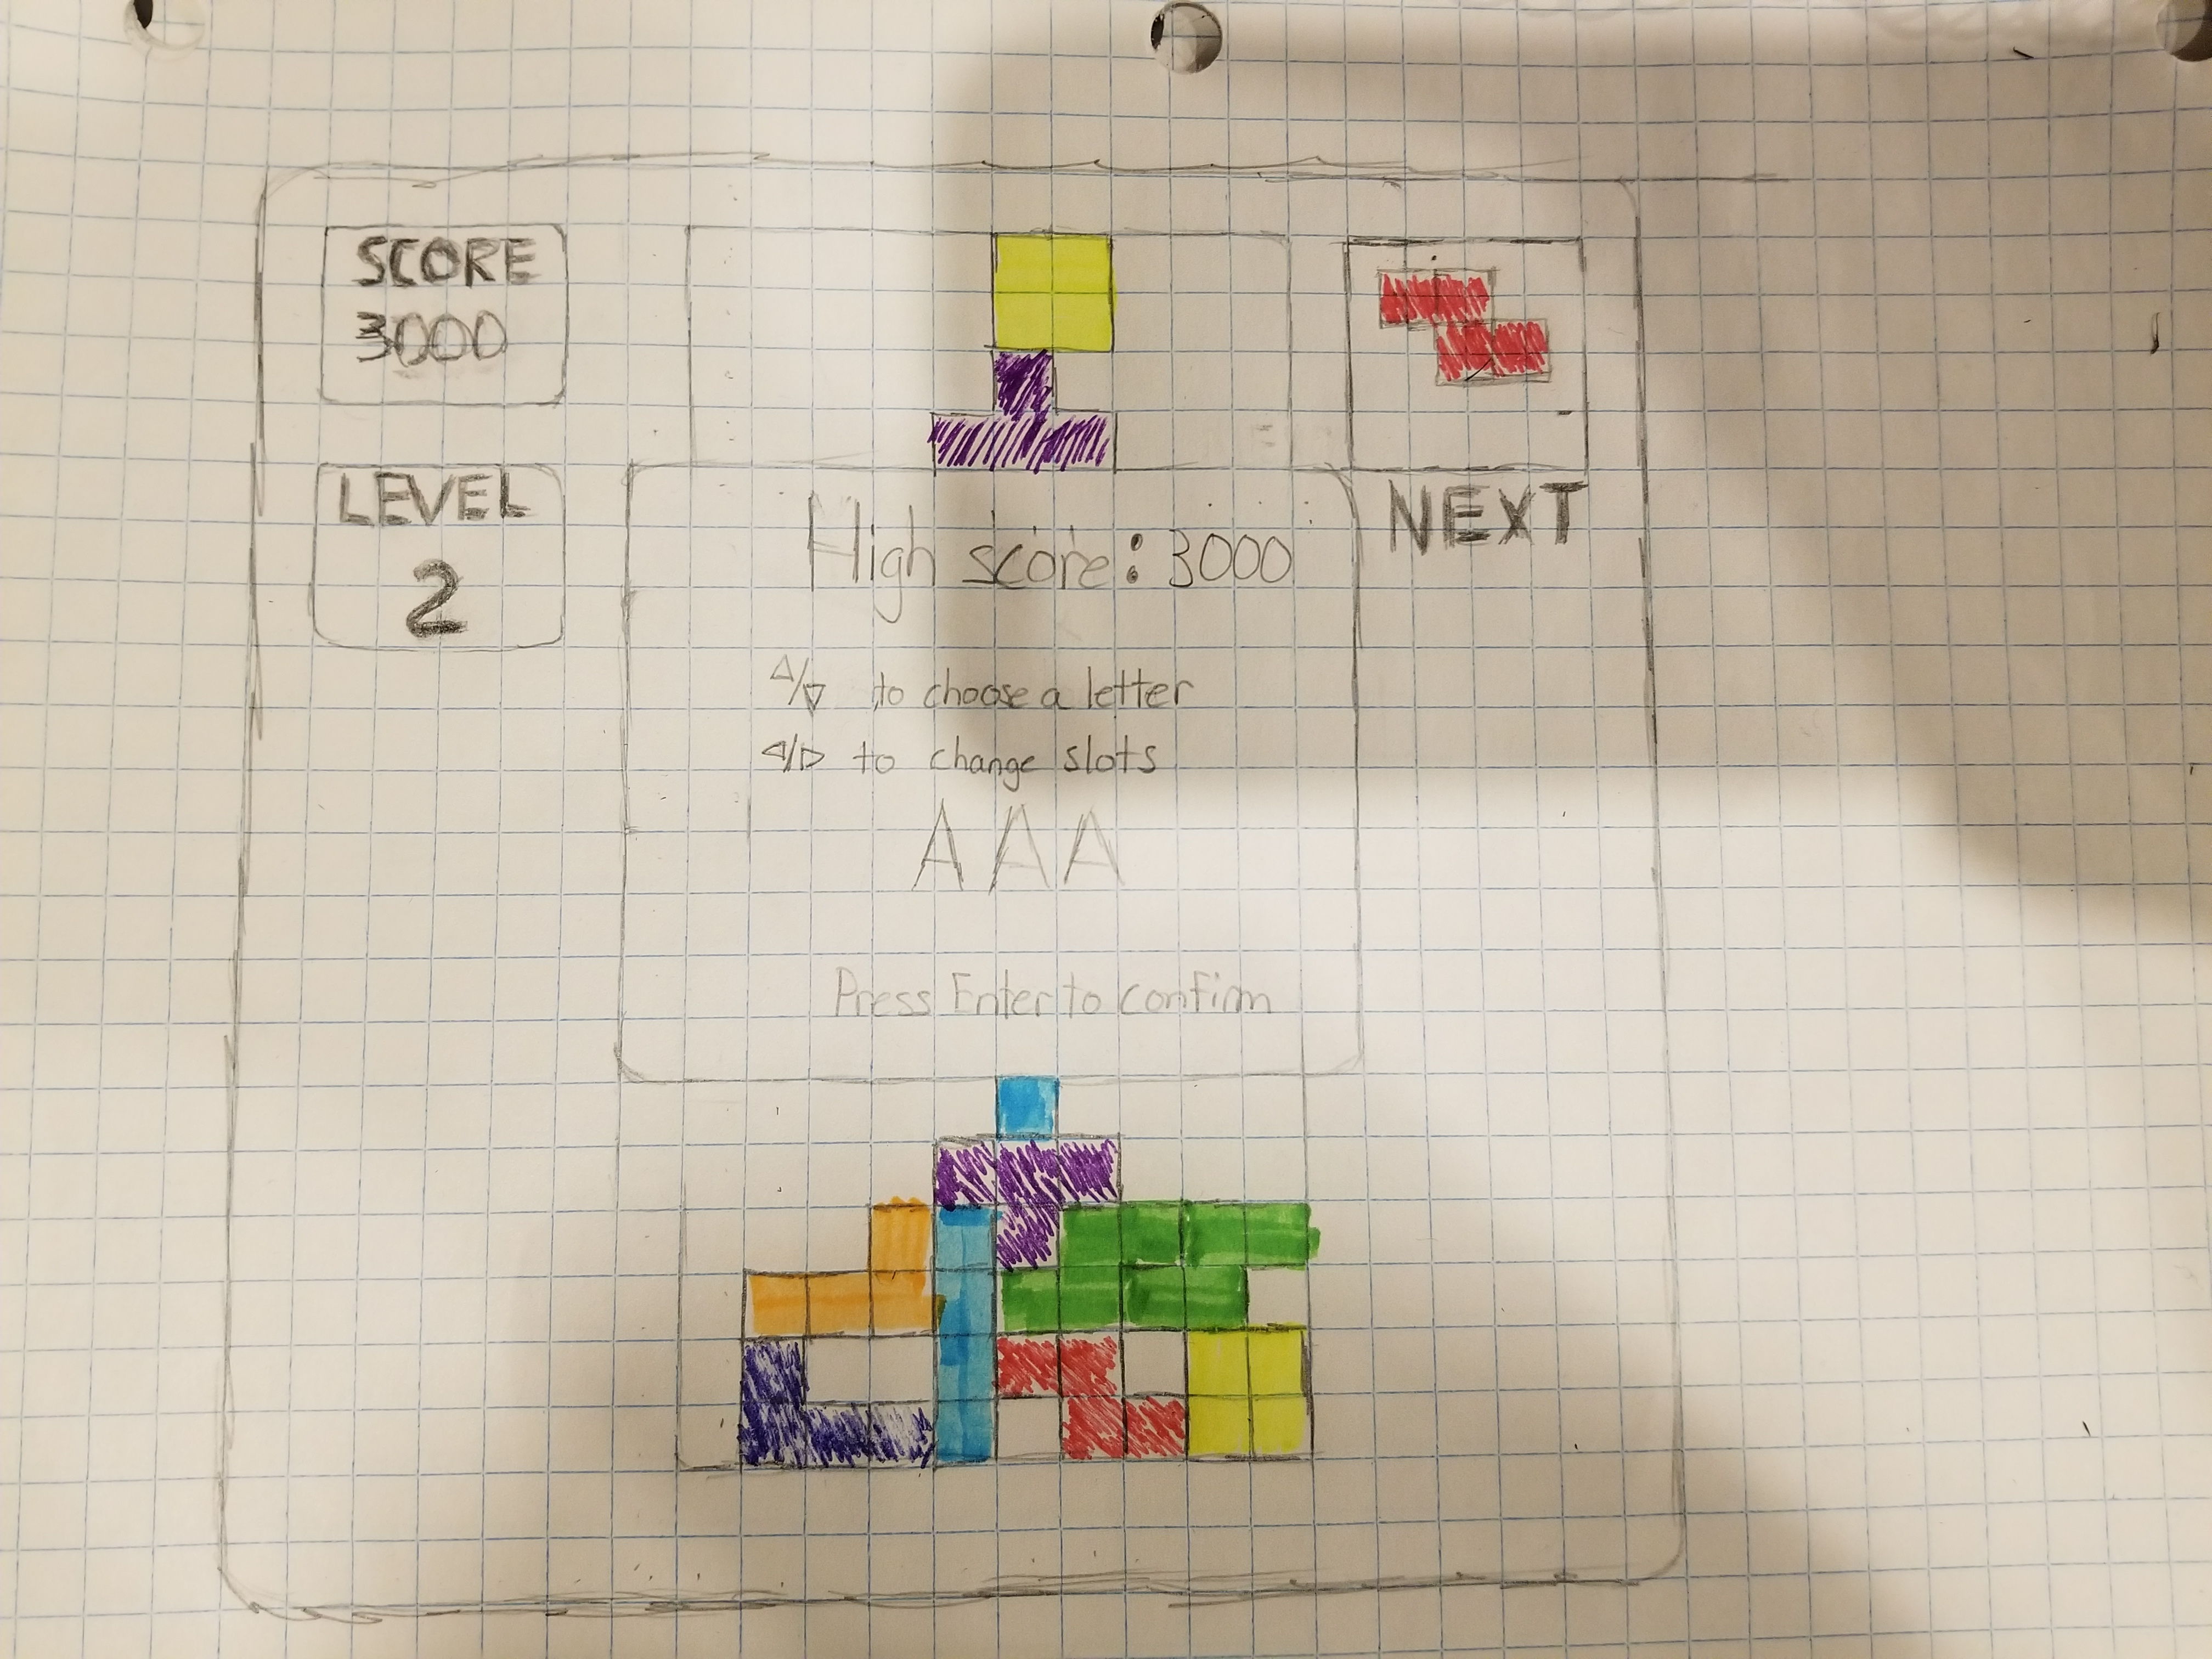 SCORE
3000
LEVEL
2
NEXT
High score: 3000
△/▽ to choose a letter
◁/▷ to change slots
A A A
Press Enter to confirm